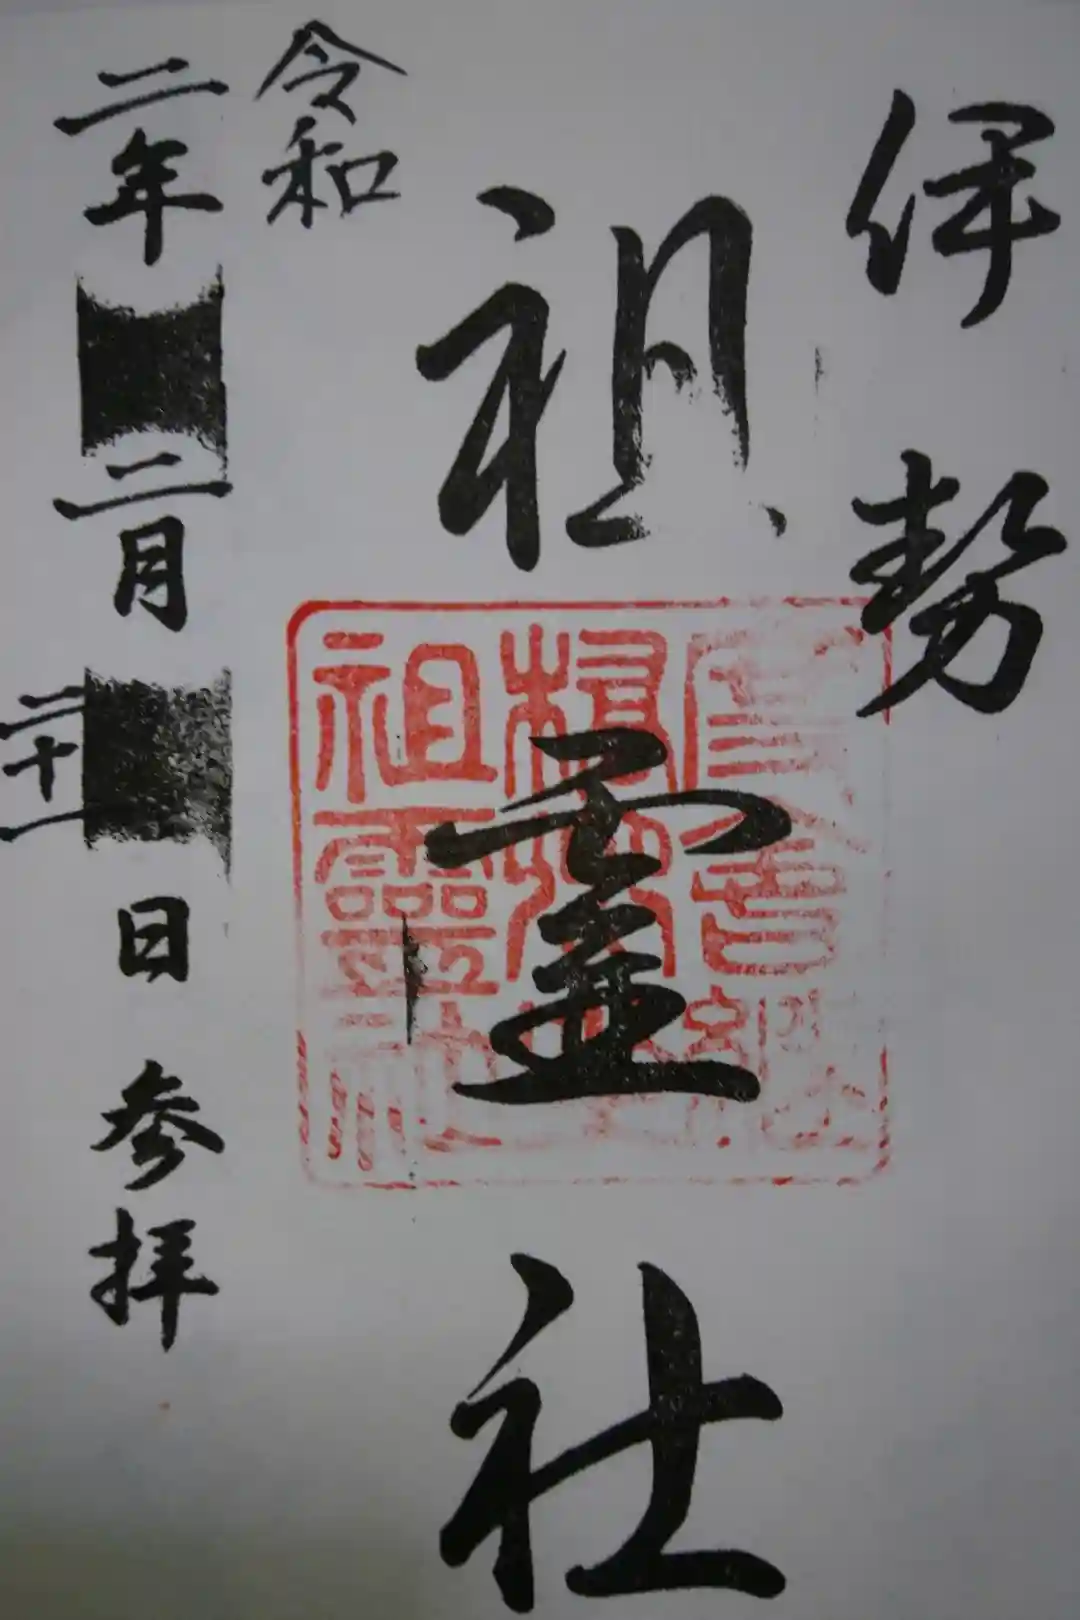 伊勢
祖霊社
令和
二年二月二十一日参拝
祖霊社